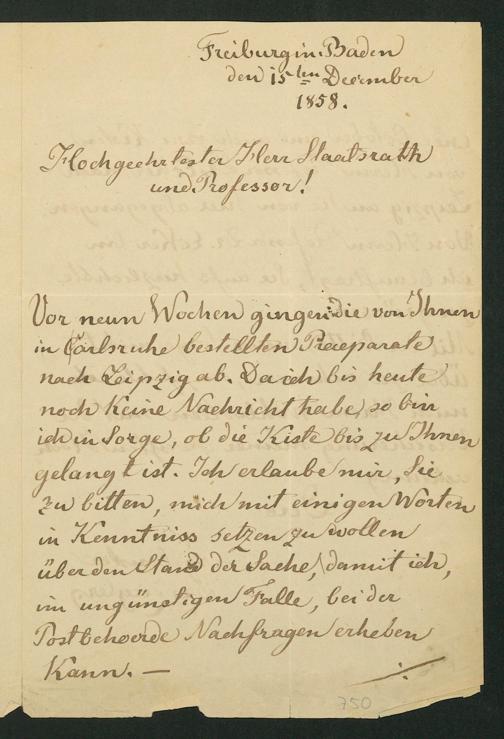 Freiburg in Baden
den 15ten December
1858.
Hochgeehrtester Herr Staatsrath
und Professor!
Vor neun Wochen gingen die von Ihnen
in Carlsruhe bestellten Praeparate
nach Leipzig ab. Da ich bis heute
noch keine Nachricht habe, so bin
ich in Sorge, ob die Kiste bis zu Ihnen
gelangt ist. Ich erlaube mir, Sie
zu bitten, mich mit einigen Worten
in Kenntniss setzen zu wollen
über den Stand der Sache, damit ich,
im ungünstigen Falle, bei der
Postbehoerde Nachfragen erheben
kann. —
750